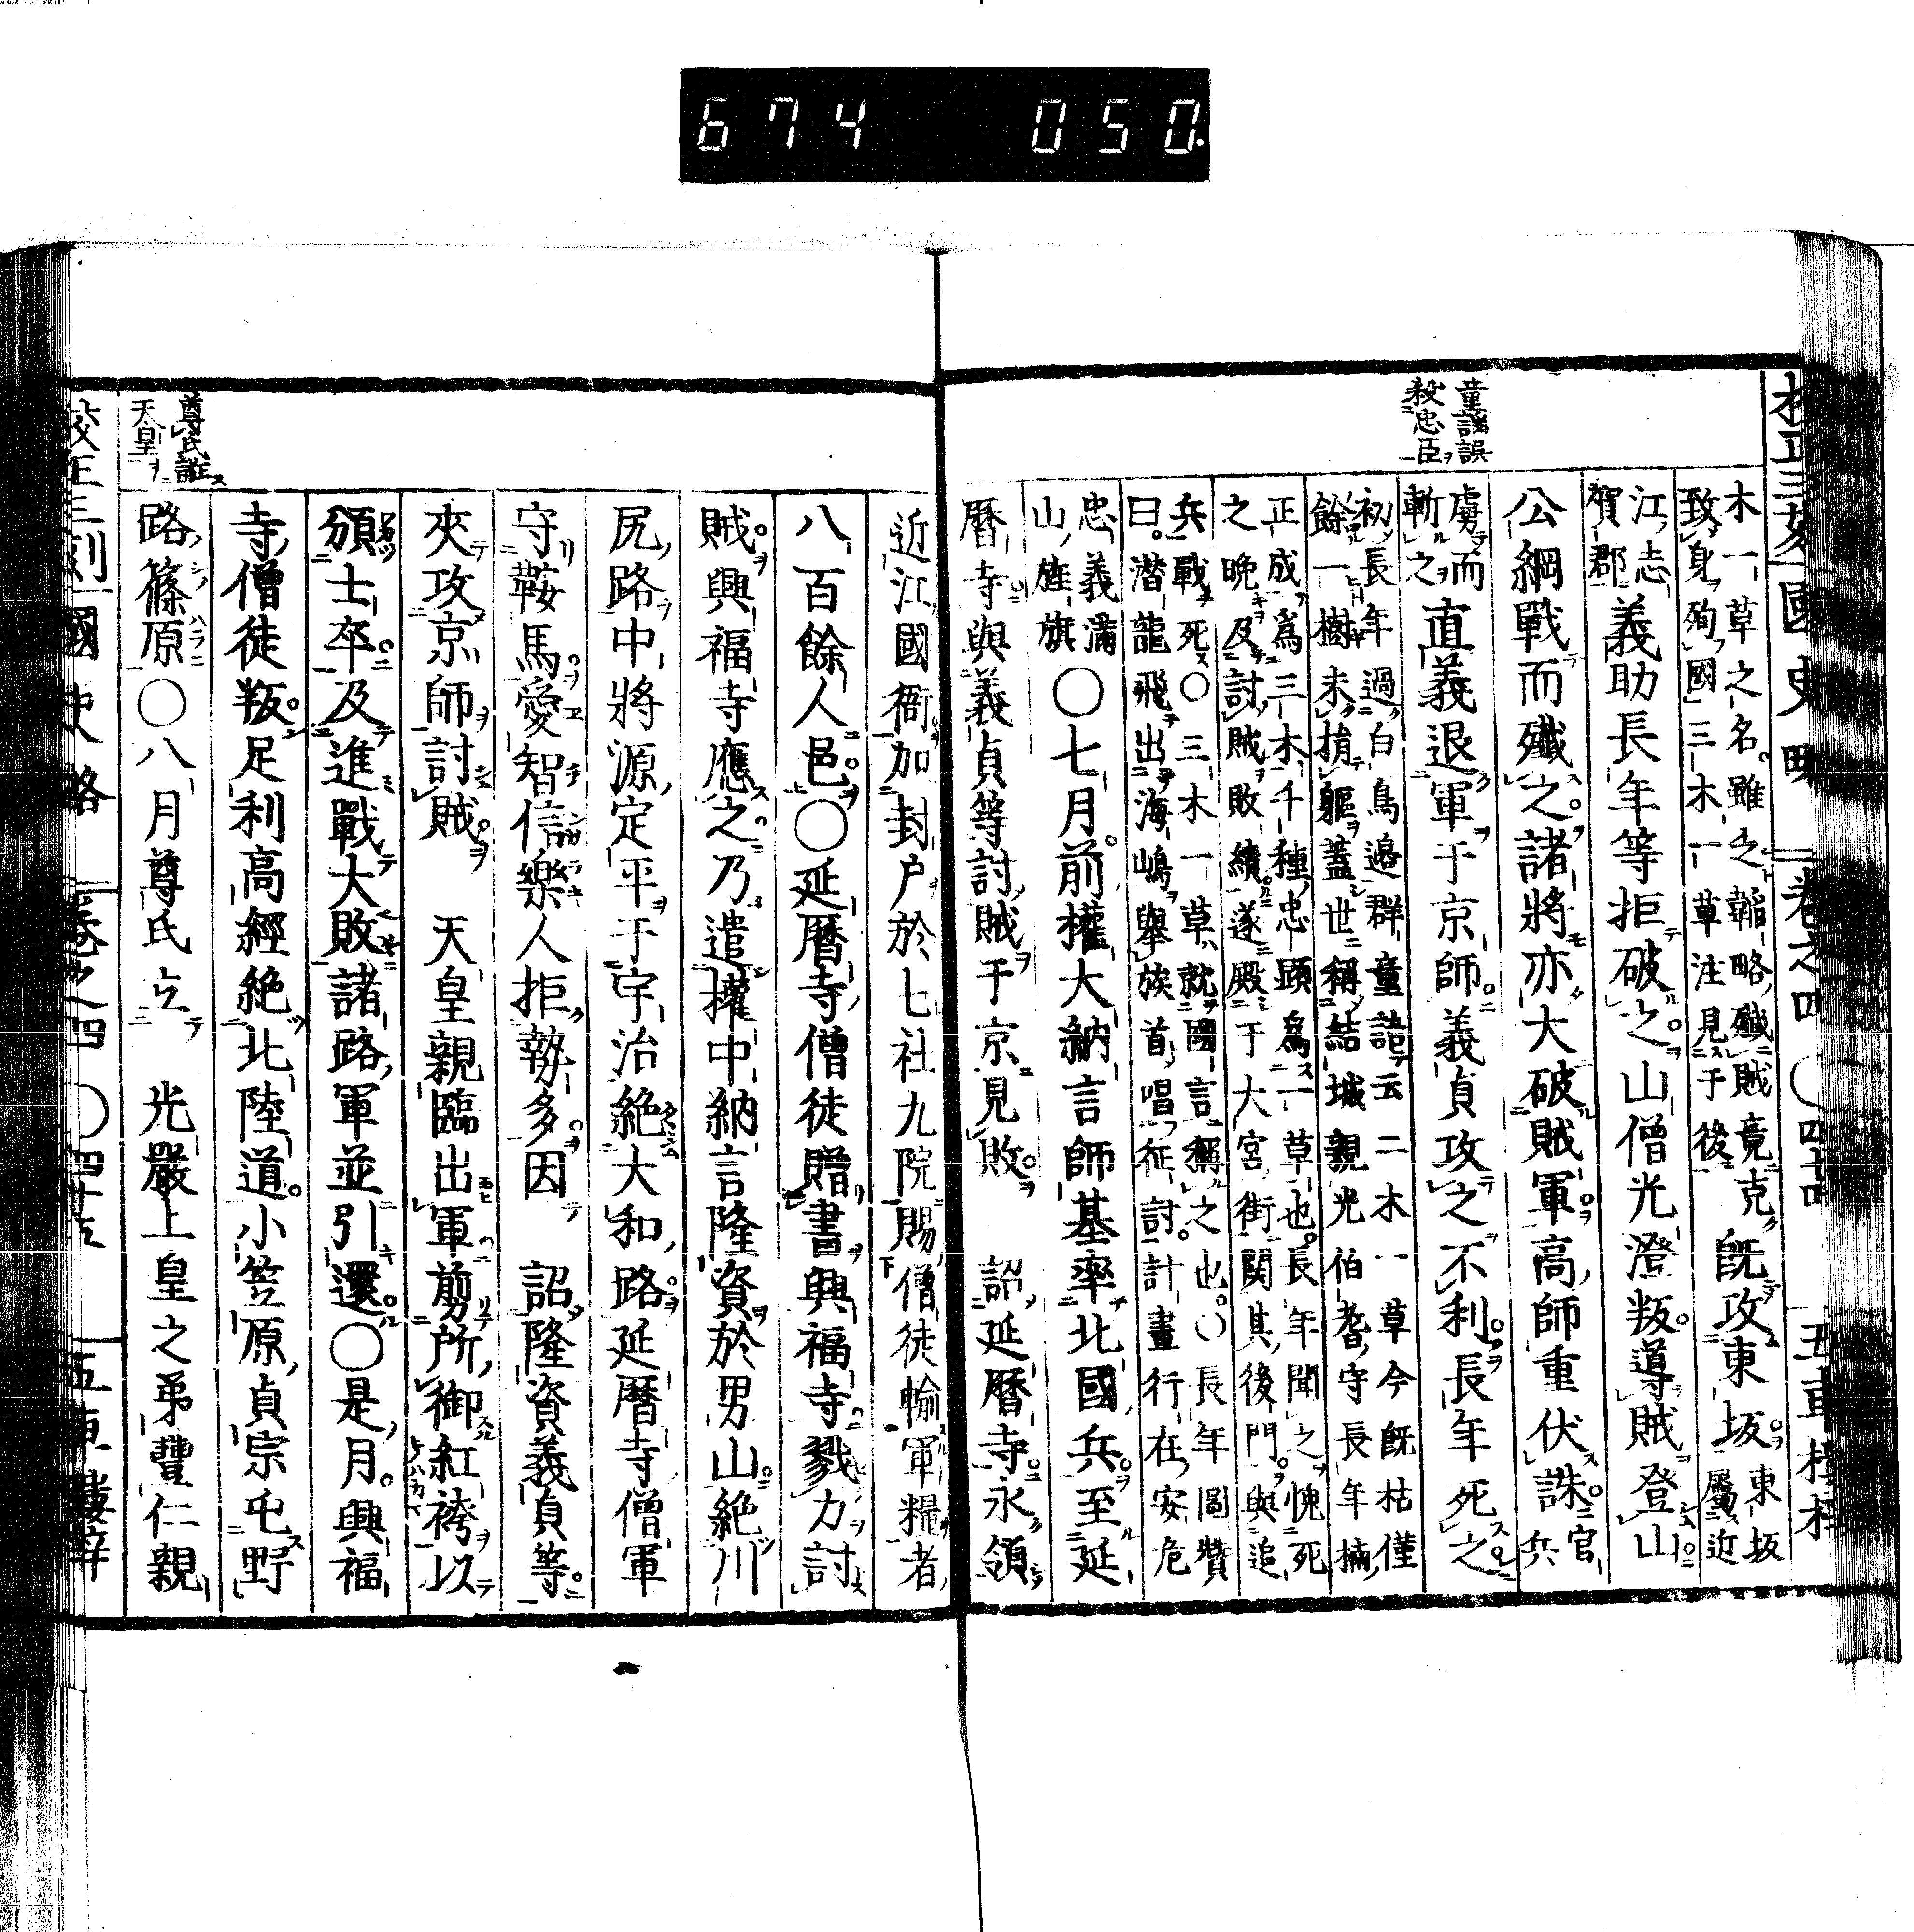 674 050
童謡誤
殺忠臣
木一草之名。雖乏韜略、殲賊竟克
致身殉國三木一草注見于後
既攻東坂。
東坂
屬近
江、志
賀郡
義助長年等拒破之。山僧光澄叛。導賊登山
公綱戰而殲之。諸將亦大破賊軍。高師重伏誅。
官
兵
虜而
斬之
直義退軍于京師。義貞攻之不利。長年死之
初長年過白鳥邊群童謡云二木一草今既枯僅
餘一樹未捐軀蓋世稱結城親光伯耆守長年楠
正成爲三木千種忠顯爲一草也。長年聞之愧死
之晩及討賊敗績。遂殿于大宮街関其後門。與追
兵戰死〇三木一草就國言稱之也。〇長年圖贊
曰。潜龍飛出海嶋擧族首唱征討。計畫行在安危
忠義滿
山旌旗
〇七月。前權大納言師基率北國兵。至延
暦寺與義貞等討賊于京見敗。 詔延暦寺永領
近江國衙。加封戸於七社九院賜僧徒輸軍糧者
八百餘人邑。〇延暦寺僧徒贈書興福寺戮力討
賊。興福寺應之。乃遣權中納言隆資於男山。絶川
尻路中將源定平于宇治絶大和路。延暦寺僧軍
守鞍馬。愛智信樂人拒勢多。因 詔隆資義貞等。
夾攻京師討賊。 天皇親臨出軍剪所御紅袴以
頒士卒。及進戰大敗諸路軍並引還。〇是月。興福
寺僧徒叛。足利高經絶北陸道。小笠原貞宗屯野
路篠原〇八月尊氏立 光嚴上皇之弟豐仁親
尊氏誑
天皇
國史略 卷之四 〇四十五